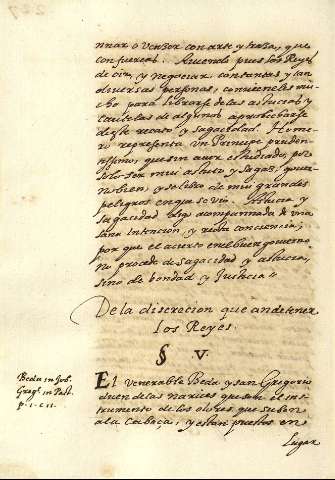 nnar o Vençer con arte y traza, que
con fuerças. Auiendo pues los Reyes
de oir, y negociar, con tantas y tan
diversas personas, conuieneles mu
cho para librarse de las astucias y
cautelas de algunos aprobecharse
deste recato y sagacidad. Home
ro representa un Principe pruden
tissimo, que sin auer estudiado, por
solo ser mui astuto y sagaz, gouer
no bien, y se libro de mui grandes
peligros en que se vio. Astucia y
sagacidad digo acompannada de una
sana intencion y recta conciencia,
por que el acierto en el buen gouier
no procede de sagacidad y astucia,
sino de bondad y Justicia
De la discrecion que an de tener
los Reyes.
§ V.
Beda in Job.
Greg. in Past.
p. 1. c. 11.
El venerable Beda y san Gregorio
dicen de las narices que son el ins
trumento de los olores que suben
a la Cabeça, y estan puestas en
Lugar